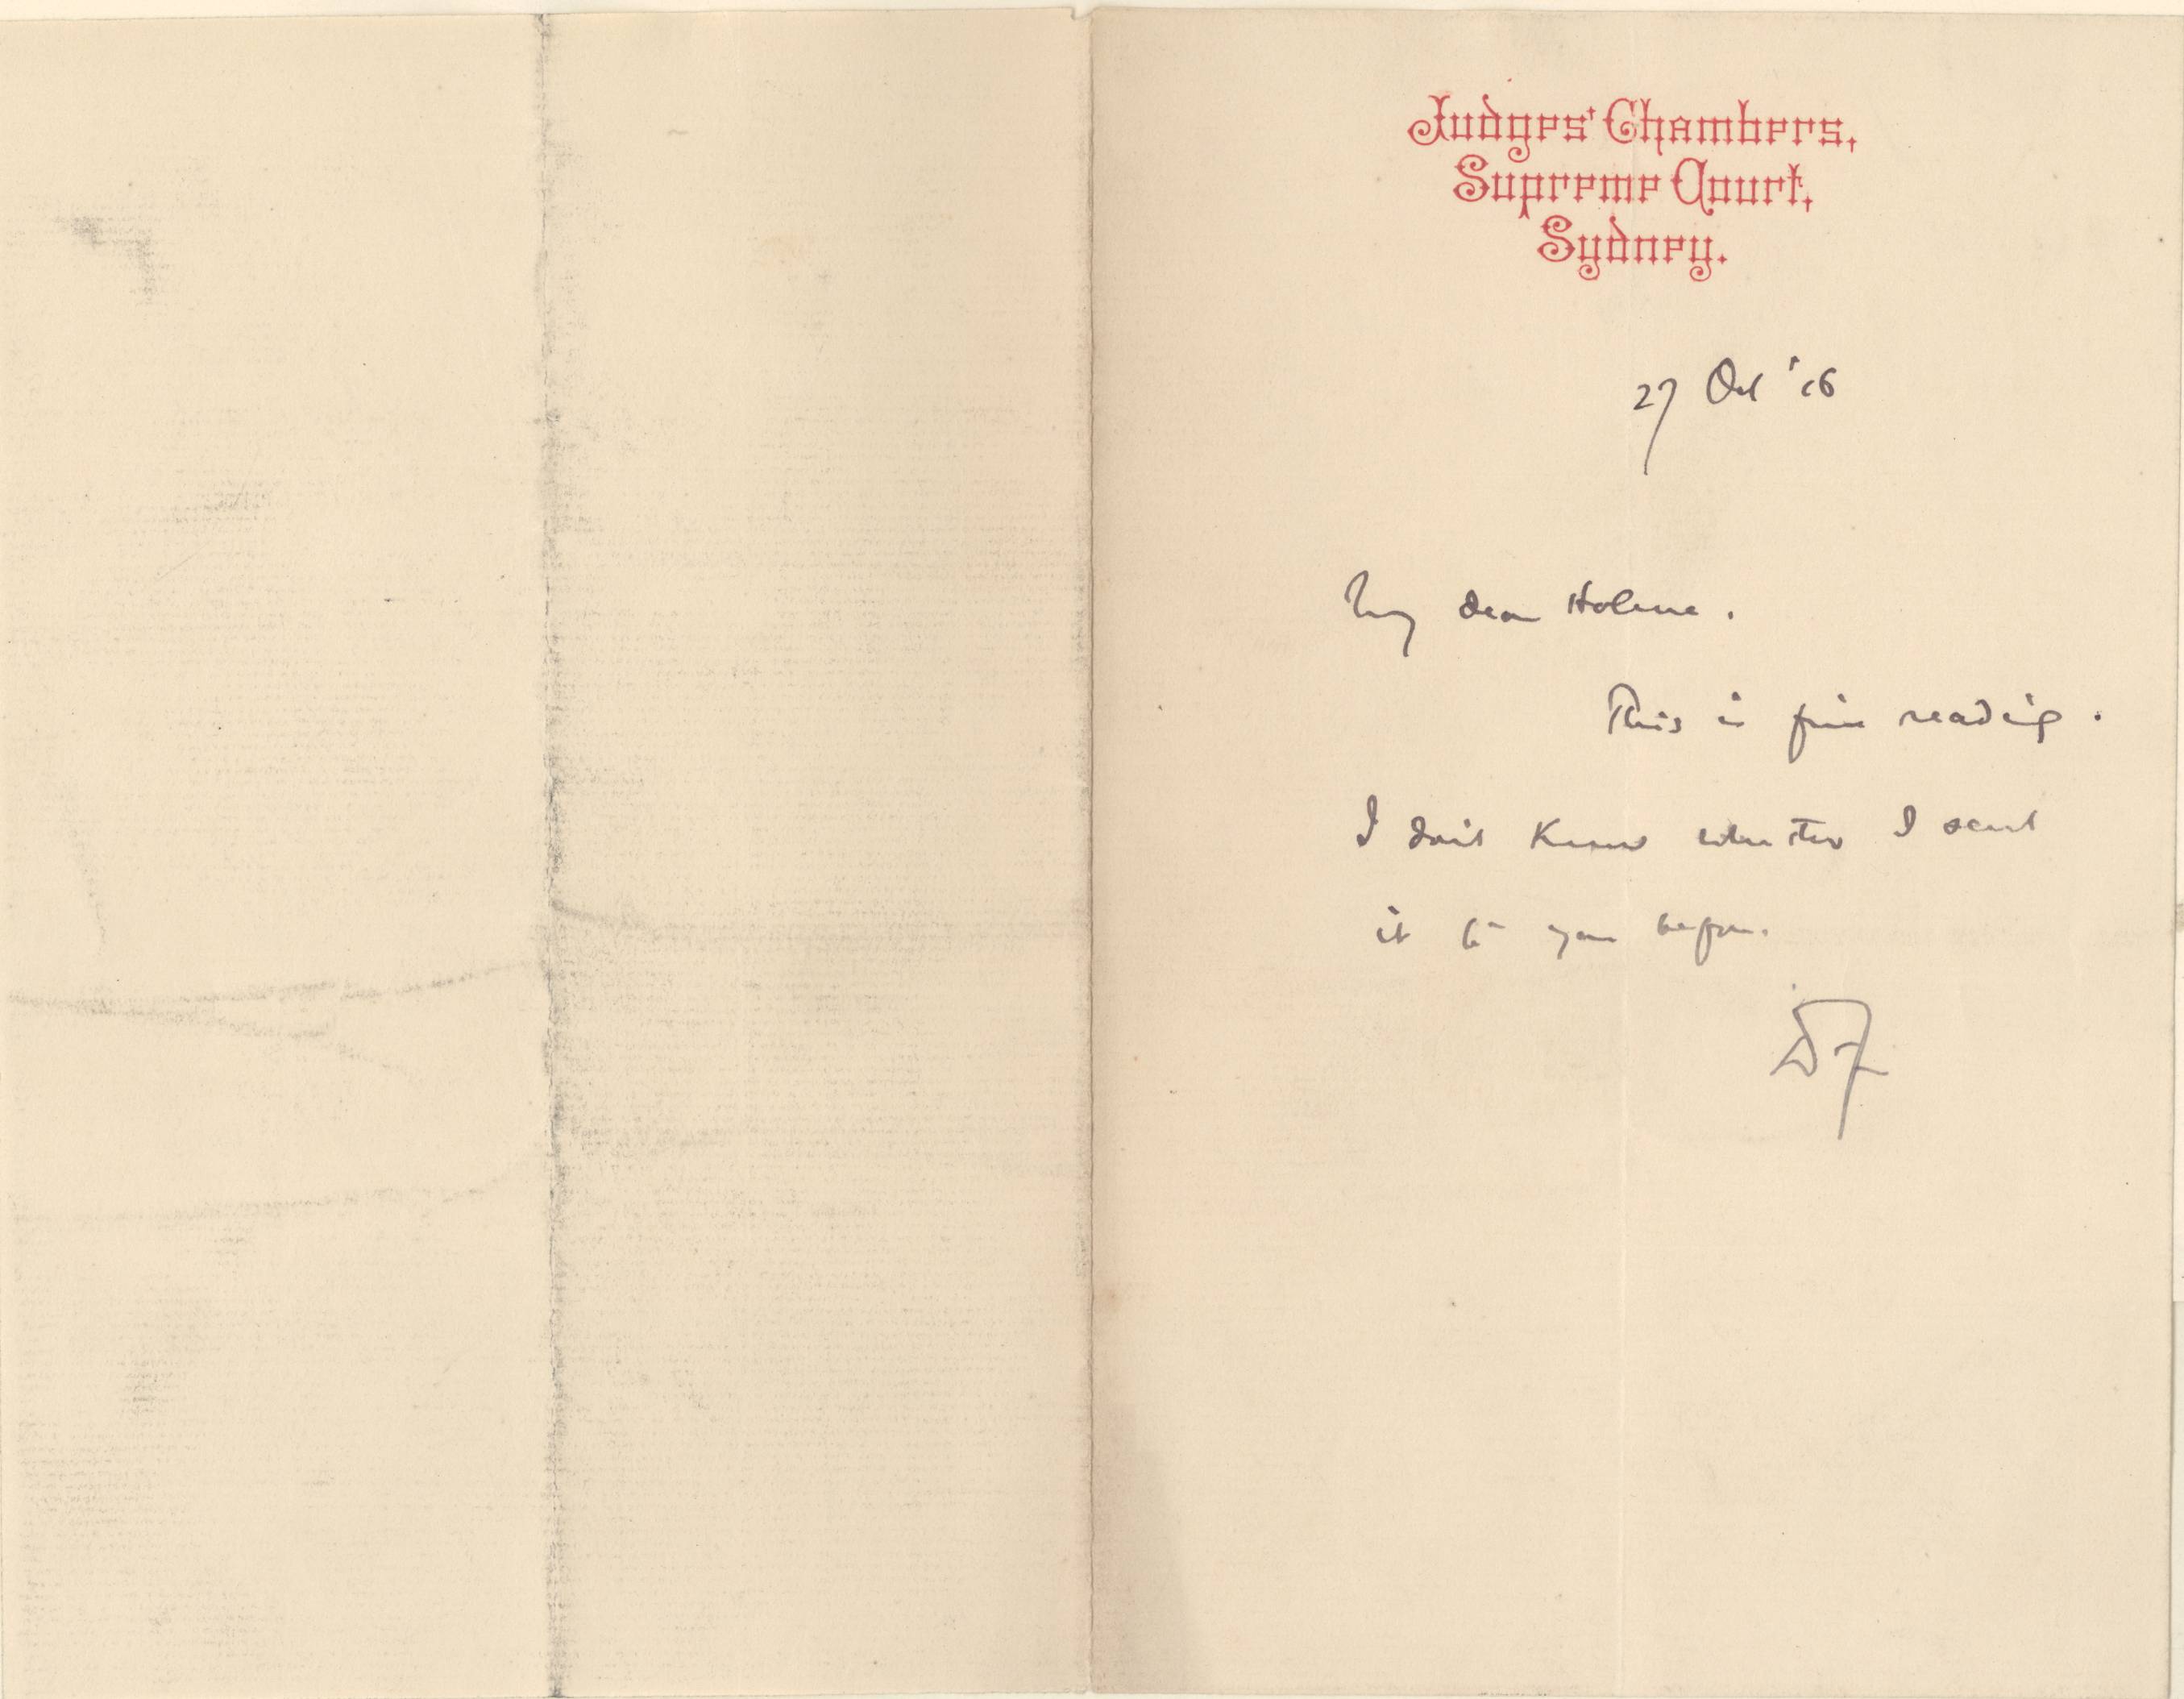 Judges' Chambers,
Supreme Court,
Sydney.
27 Oct '16
My dear Holme.
This is fine reading.
I don't know whether I sent
it to you before.
DF